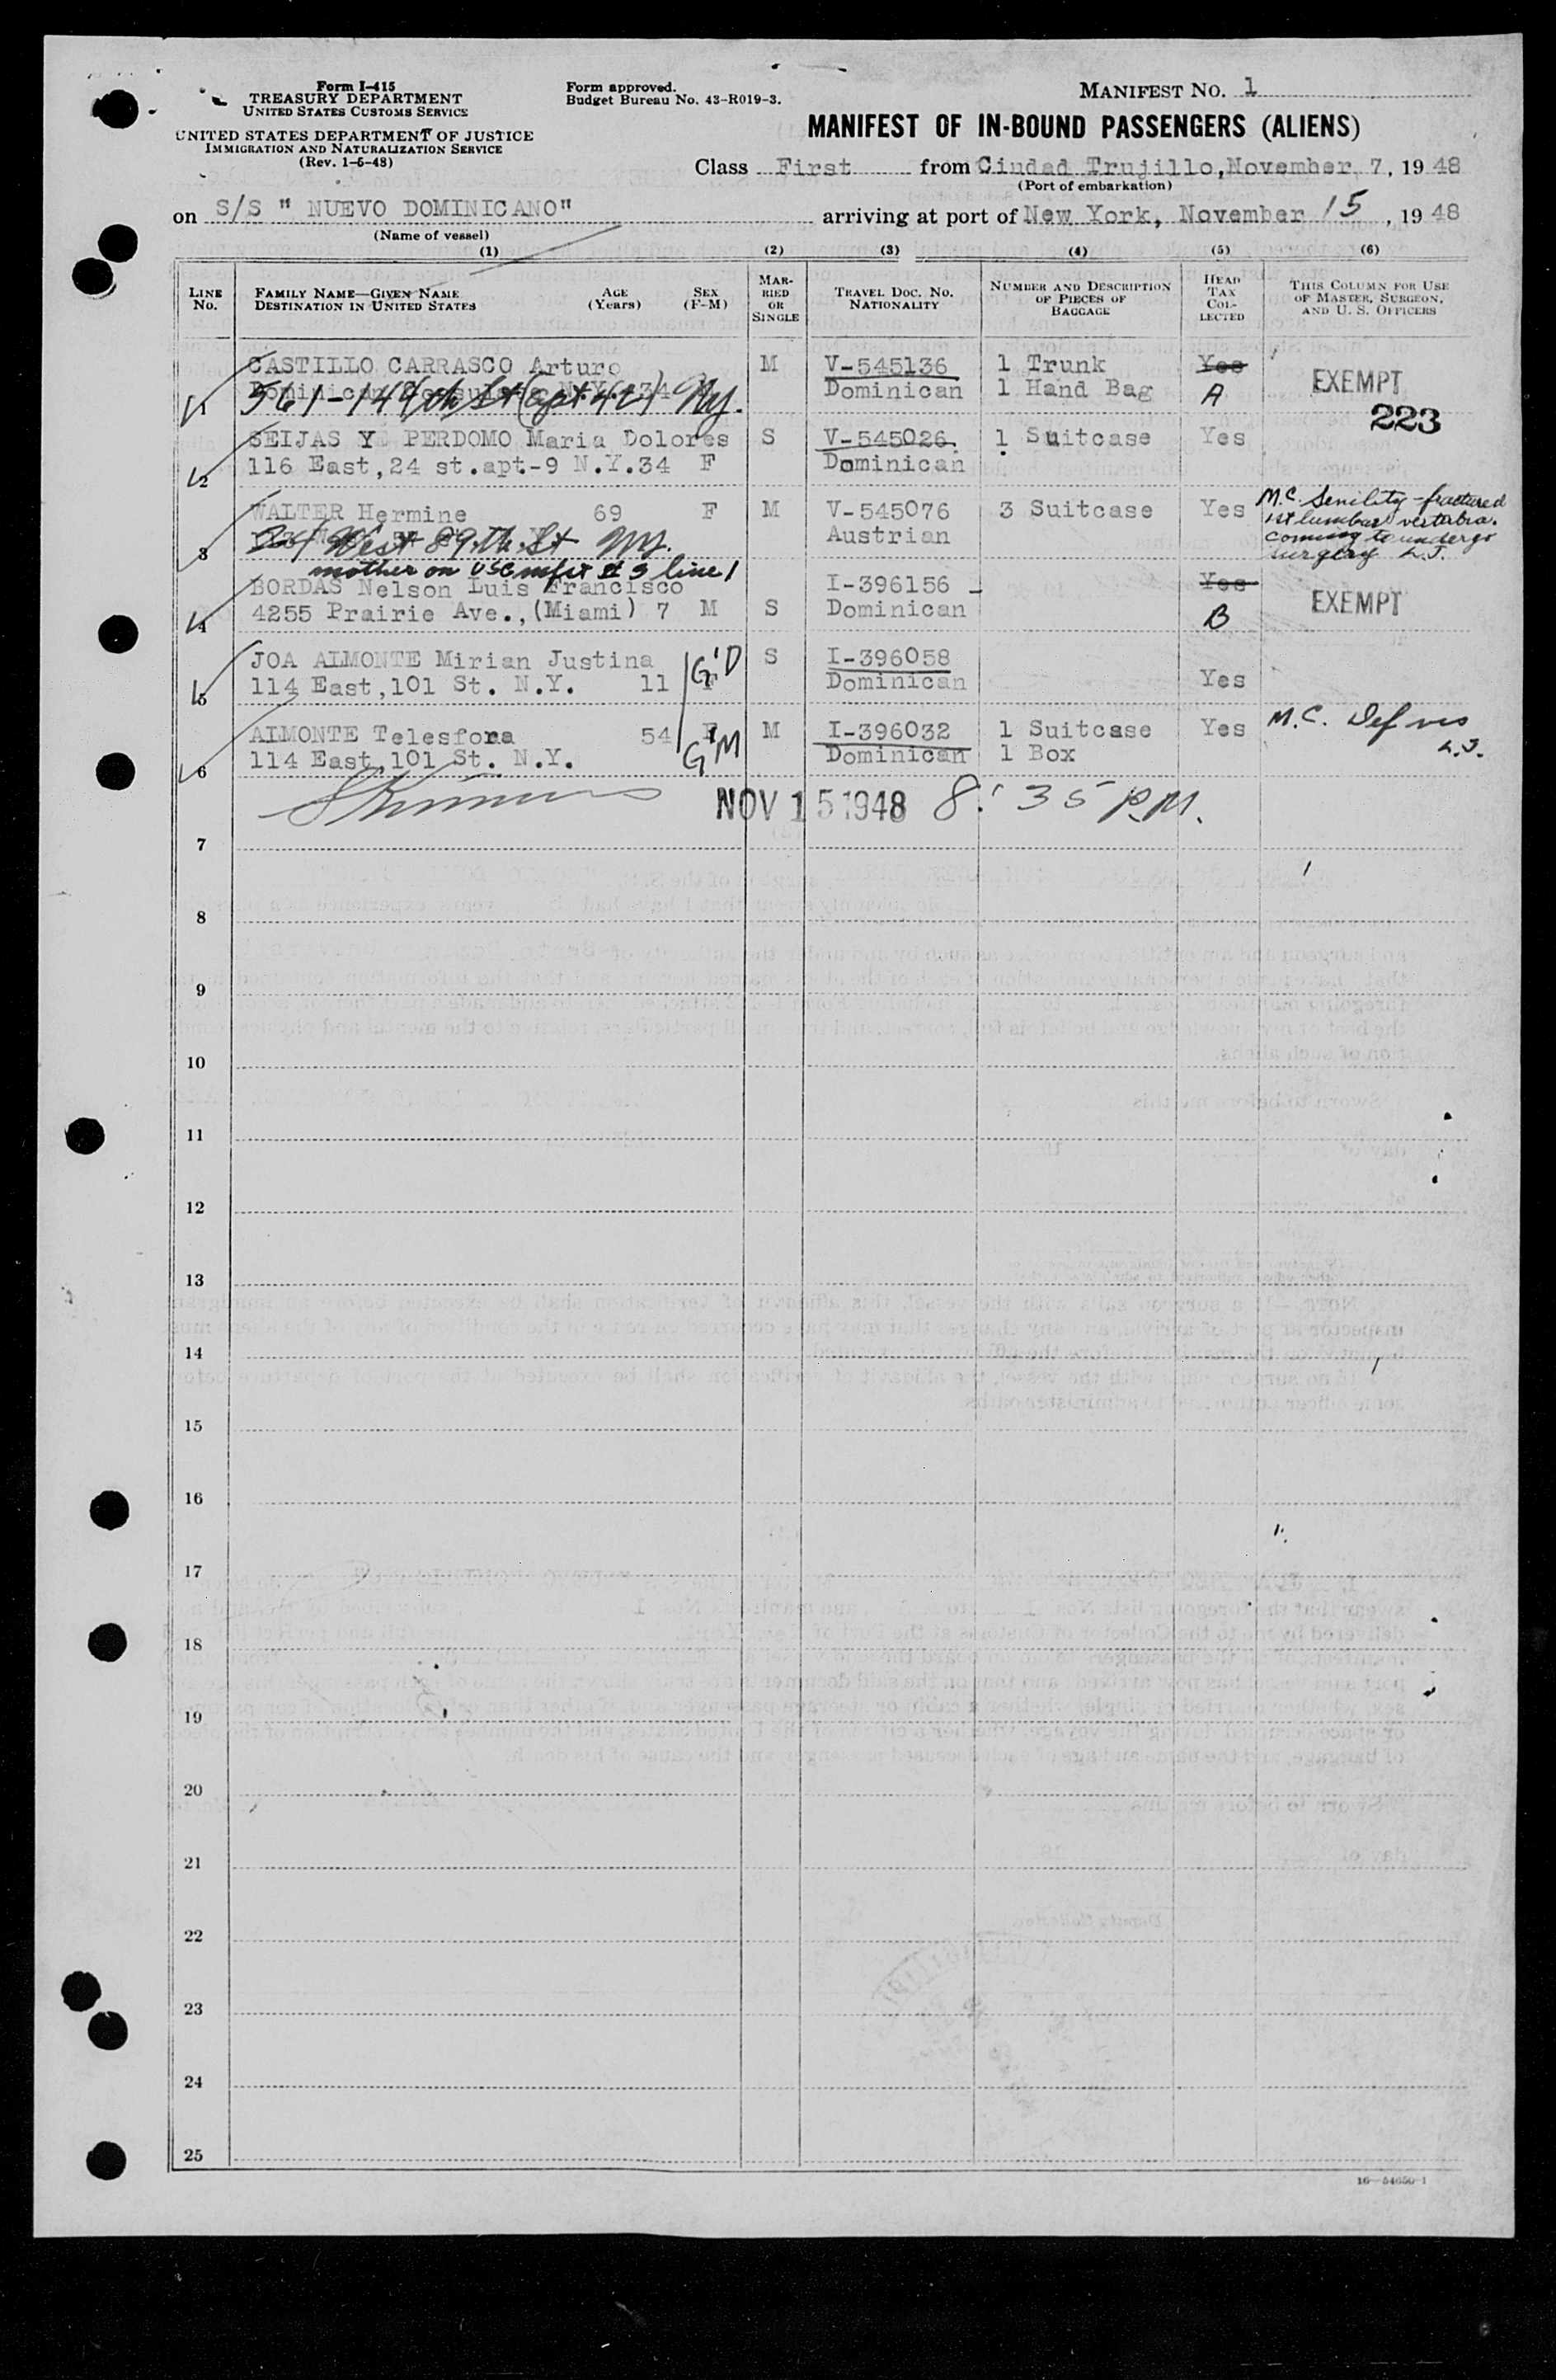 Form I-415
TREASURY DEPARTMENT
UNITED STATES CUSTOMS SERVICE
UNITED STATES DEPARTMENT OF JUSTICE
IMMIGRATION AND NATURALIZATION SERVICE
(Rev. 1-6-48)
Form approved.
Budget Bureau No. 43-R019-3.
MANIFEST NO. 1
MANIFEST OF IN-BOUND PASSENGERS (ALIENS)
Class First from Ciudad Trujillo, November 7, 1948
(Port of embarkation)
on S/S " NUEVO DOMINICANO" arriving at port of New York, November 15, 1948
(Name of vessel)
(1) (2) (3) (4) (5) (6)
LINE NO. FAMILY NAME—GIVEN NAME DESTINATION IN UNITED STATES AGE (Years) SEX (F-M) MARRIED OR SINGLE TRAVEL DOC. NO. NATIONALITY NUMBER AND DESCRIPTION OF PIECES OF BAGGAGE HEAD TAX COLLECTED THIS COLUMN FOR USE OF MASTER, SURGEON, AND U. S. OFFICERS
CASTILLO CARRASCO Arturo M V-545136 1 Trunk Yes
1 561-144th St (apt 42) Ny. Dominican 1 Hand Bag A EXEMPT
223
SEIJAS Y PERDOMO Maria Dolores S V-545026 1 Suitcase Yes
2 116 East,24 st.apt-9 N.Y.34 F Dominican
WALTER Hermine 69 F M V-545076 3 Suitcase Yes M.C. Senility - fractured
3 West 89.th.St Ny. Austrian 1st lumbar vertebra.
coming to undergo
surgery L.J.
mother on USC mfst # 3 line 1
BORDAS Nelson Luis Francisco I-396156 Yes
4 4255 Prairie Ave.,(Miami) 7 M S Dominican B EXEMPT
JOA ALMONTE Mirian Justina G'D S I-396058
5 114 East,101 St. N.Y. 11 F Dominican Yes
ALMONTE Telesfora 54 F M I-396032 1 Suitcase Yes M.C. Def vis
6 114 East,101 St. N.Y. GM Dominican 1 Box L.J.
NOV 15 1948 8:35 P.M.
7
8
9
10
11
12
13
14
15
16
17
18
19
20
21
22
23
24
25
16—54650-1